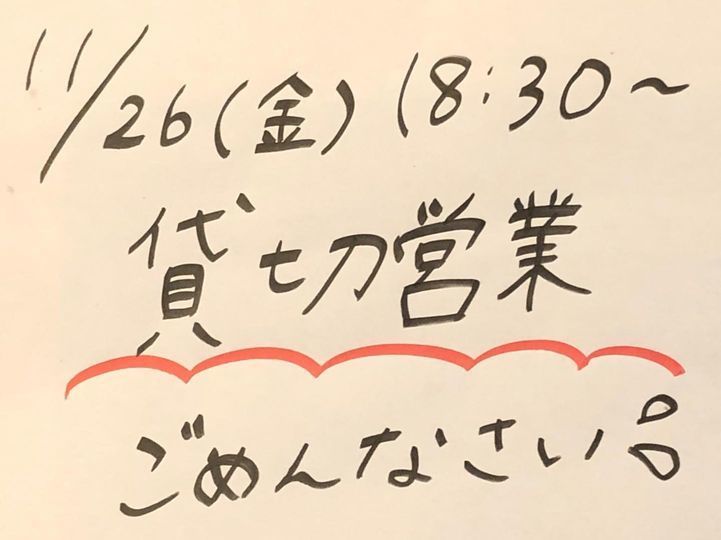 11/26(金) 18:30〜
貸切営業
ごめんなさい。